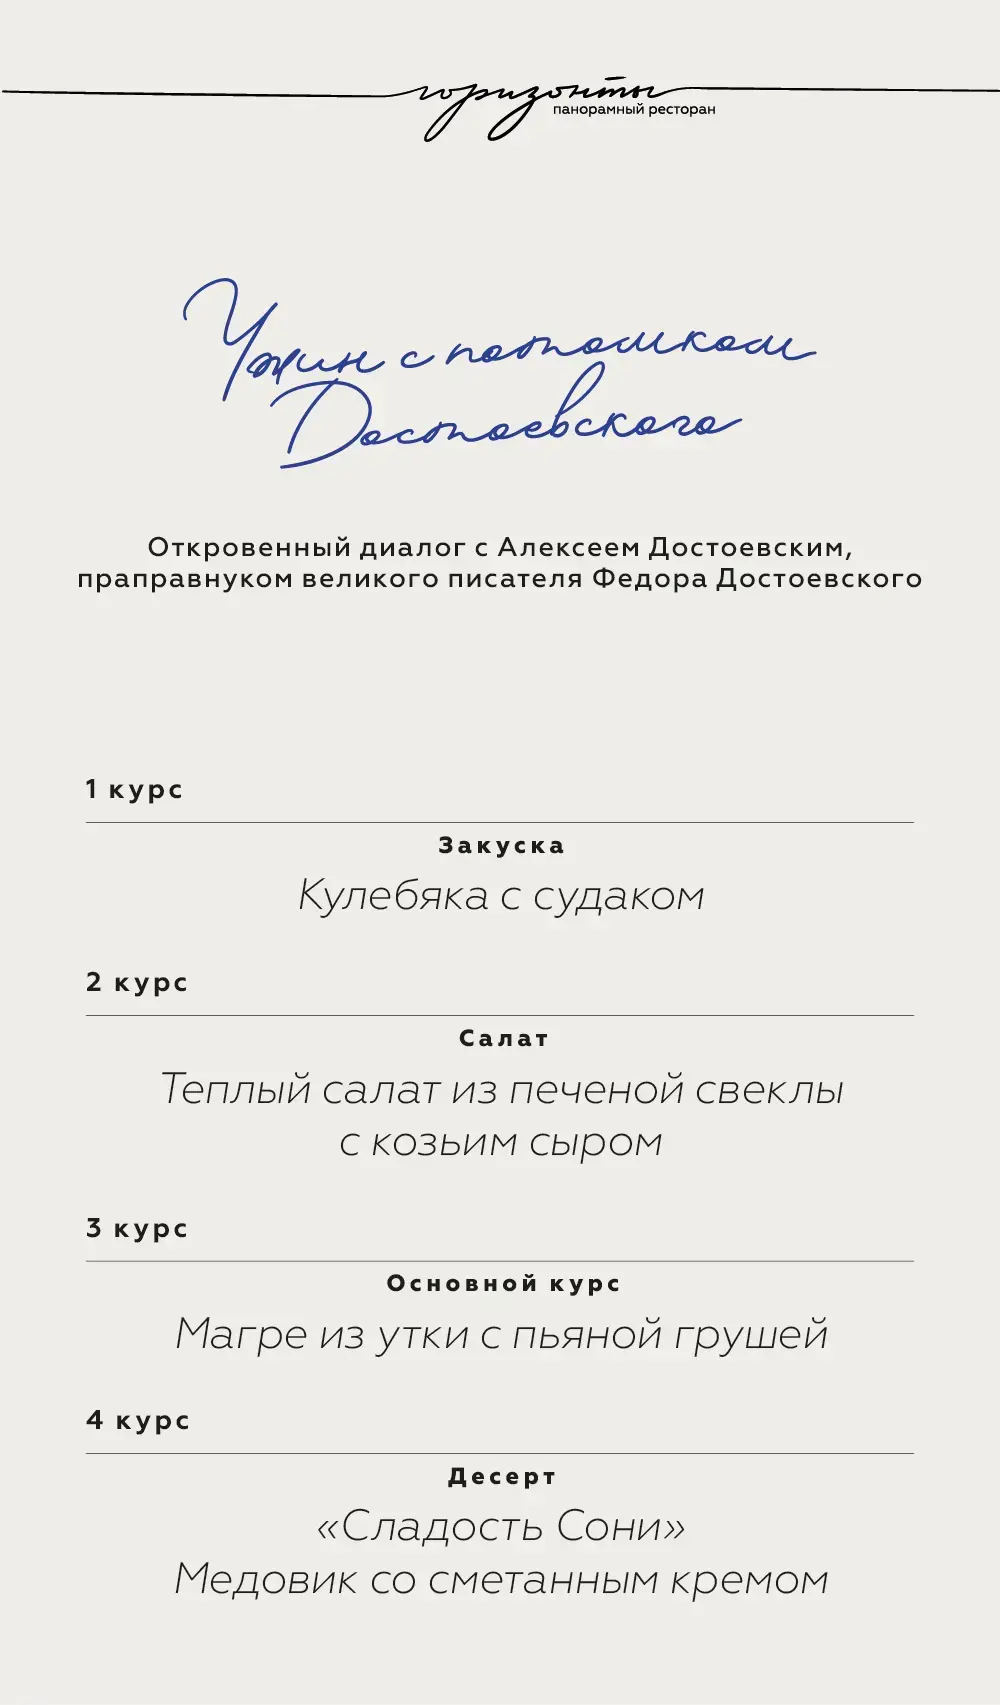 горизонты
панорамный ресторан
Ужин с потомком
Достоевского
Откровенный диалог с Алексеем Достоевским,
праправнуком великого писателя Федора Достоевского
1 курс
Закуска
Кулебяка с судаком
2 курс
Салат
Теплый салат из печеной свеклы
с козьим сыром
3 курс
Основной курс
Магре из утки с пьяной грушей
4 курс
Десерт
«Сладость Сони»
Медовик со сметанным кремом